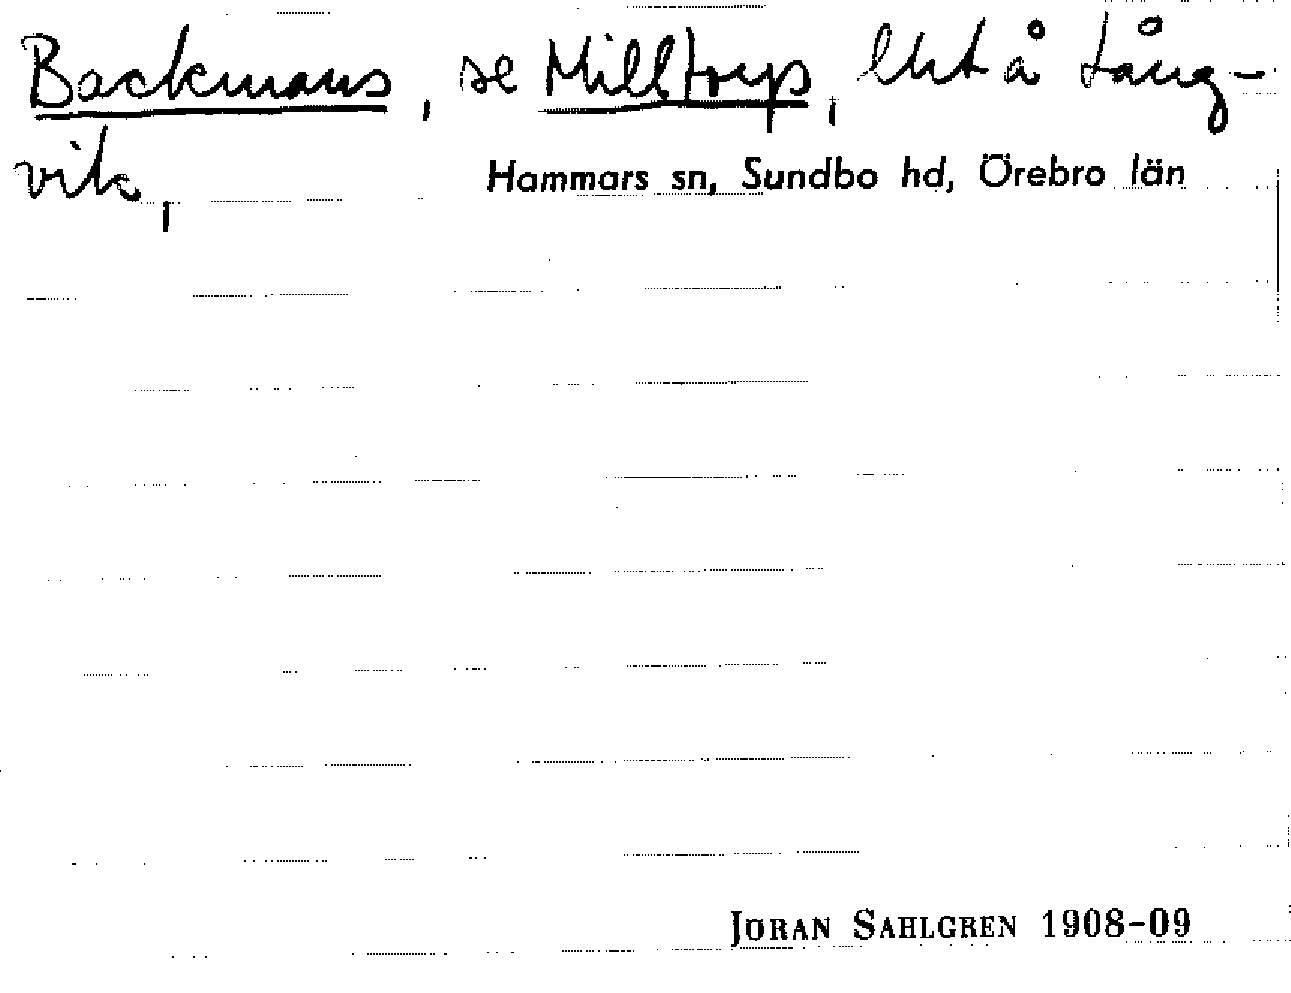 Backmans, se Milltorps, lht å Lång-
vik,
Hammars sn, Sundbo hd, Örebro län
JÖRAN SAHLGREN 1908-09